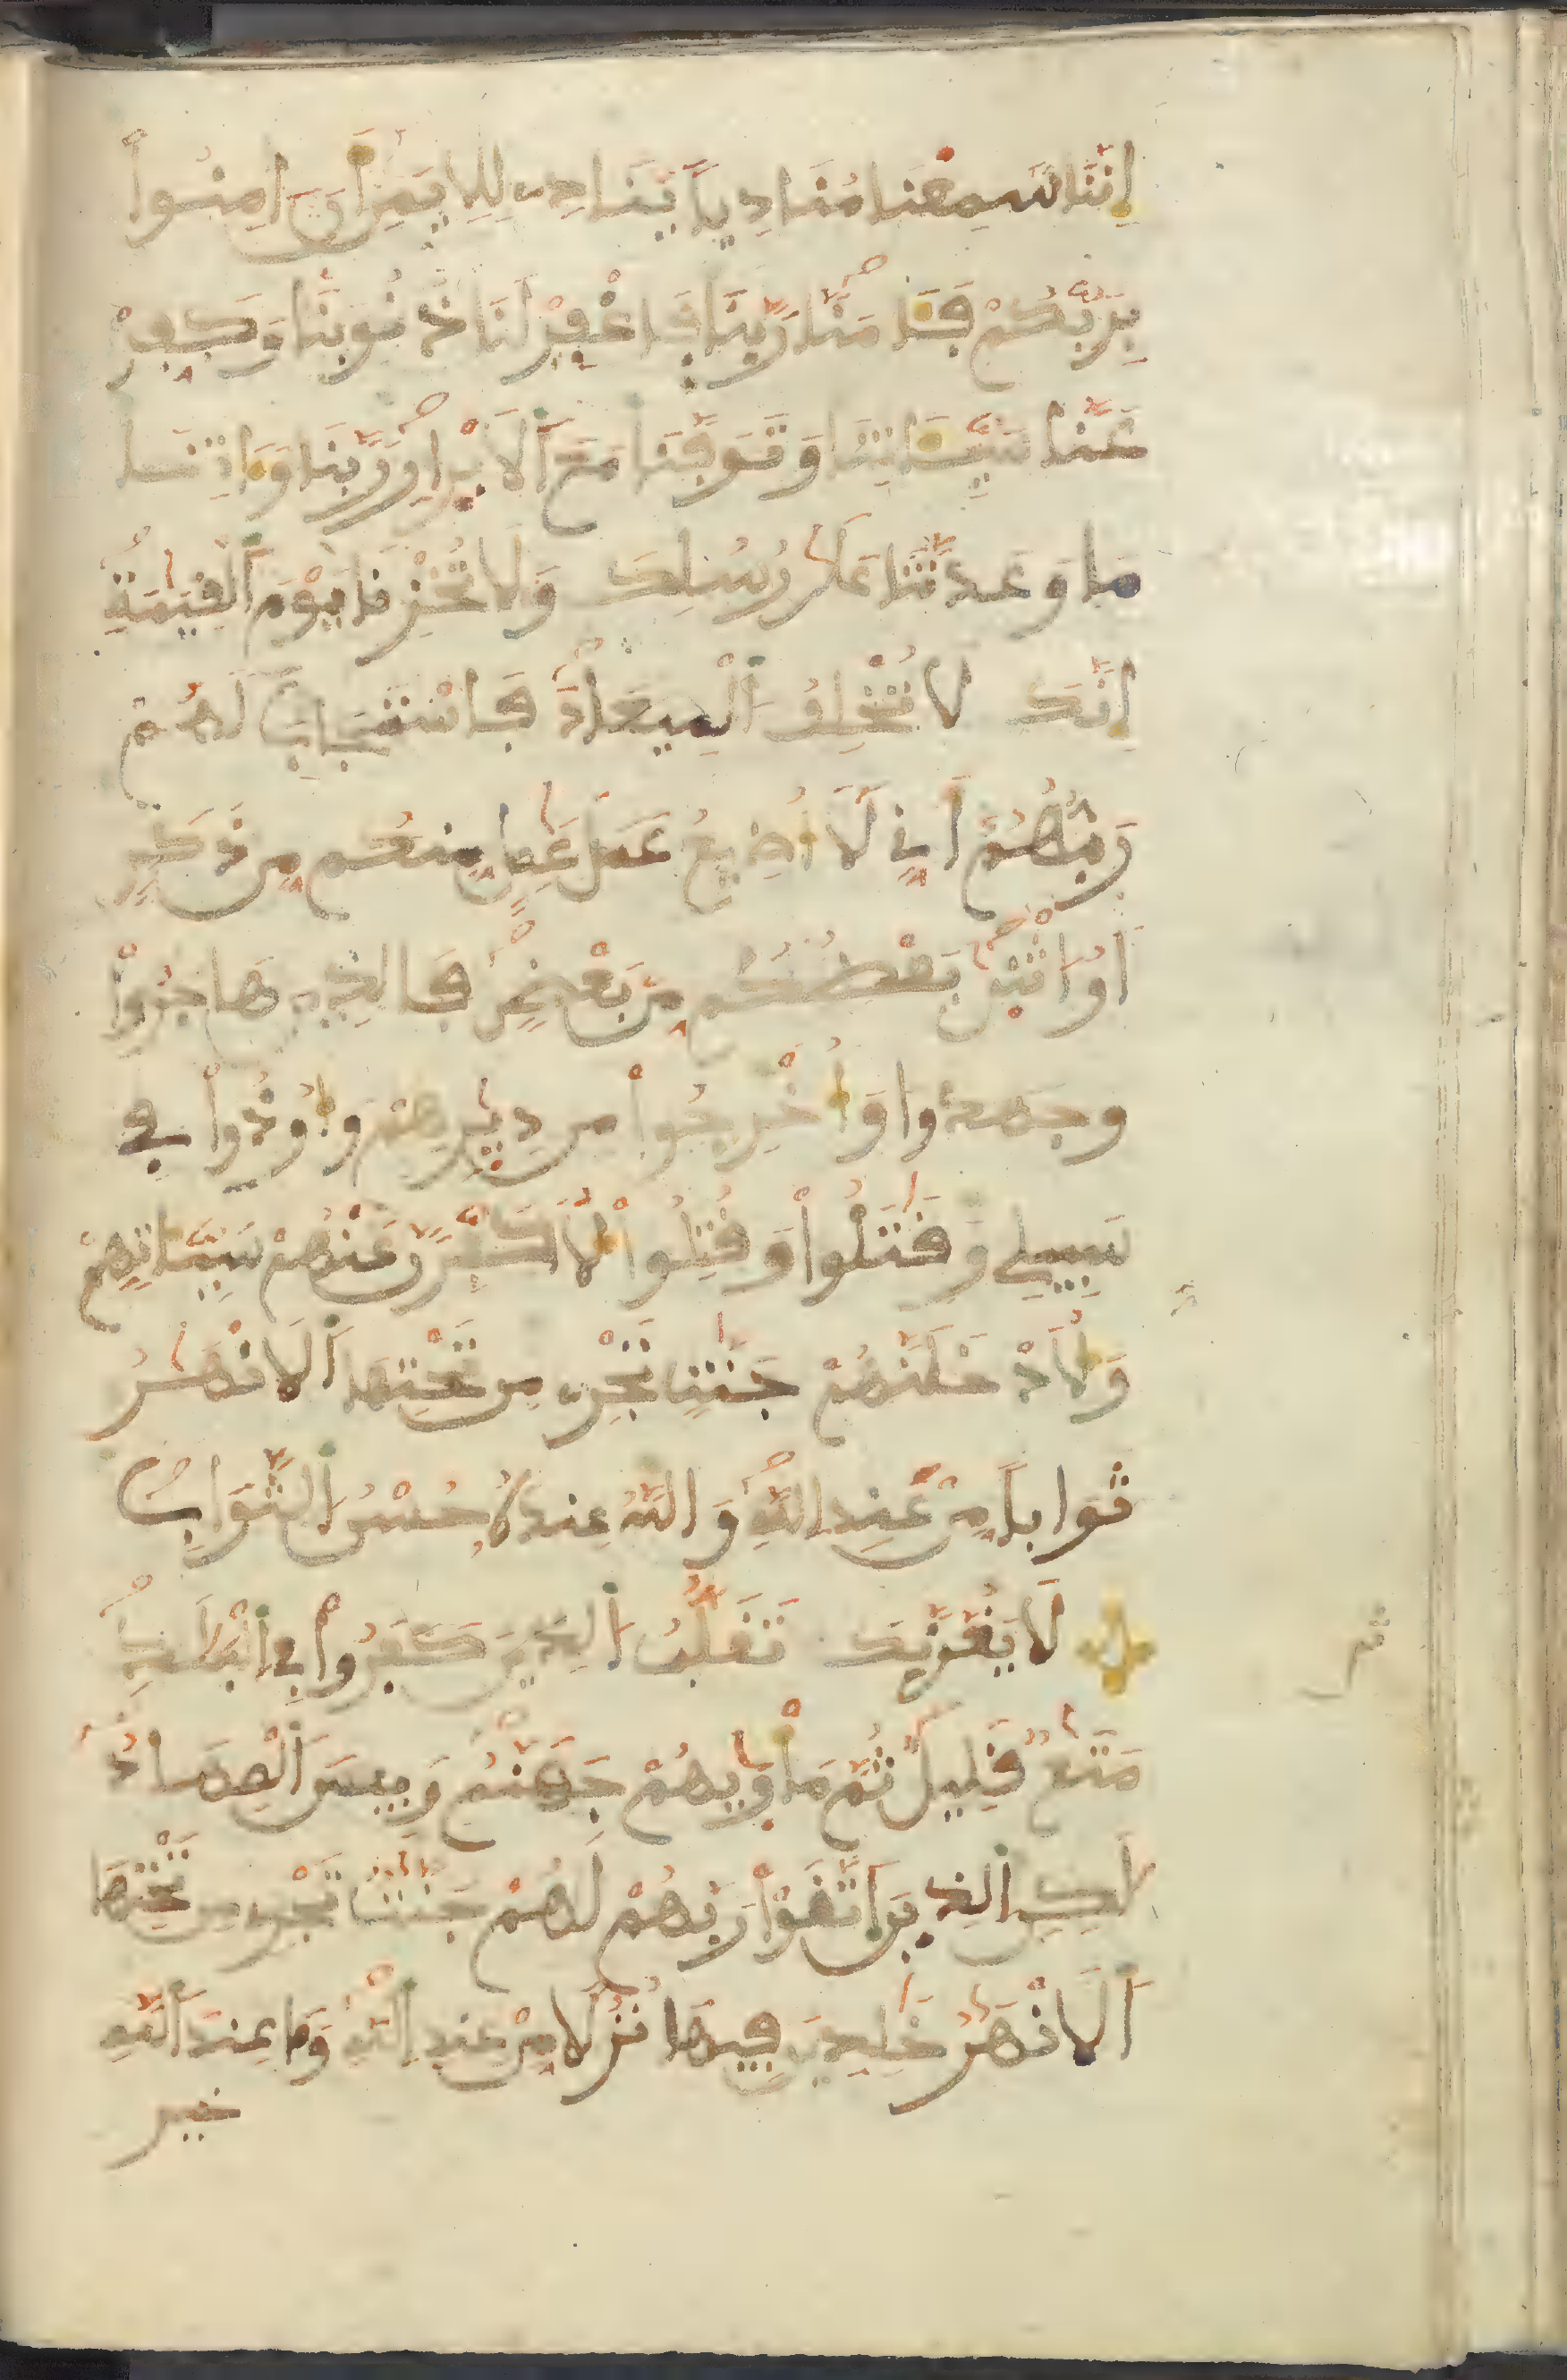 إِنَّنَا سَمِعْنَا مُنَادِياً يُنَادِے لِلِايمَٰنِ أَنَ امِنُواْ
بِرَبِّكُمْ فَـَٔامَنَّا رَبَّنَا فَاغْفِرْ لَنَا ذُنُوبَنَا وَكَفِّرْ
عَنَّا سَيِّـَٔاتِنَا وَتَوَفَّنَا مَعَ ٱلَابْرِارِ رَبَّنَا وَءَاتِنَا
مَا وَعَدتَّنَا عَلَىٰ رُسُلِكَ وَلَا تُخْزِنَا يَوْمَ ٱلْقِيَٰمَةِ
إِنَّكَ لَا تُخْلِفُ ٱلْمِيعَادَ فَاسْتَجَابَ لَهُمْ
رَبُّهُمُۥٓ أَنِّے لَآ أُضِيعُ عَمَلَ عَٰمِلٍ مِّنكُم مِّن ذَكَرٍ
اَوُ انثَىٰ بَعْضُكُم مِّنۢ بَعْضٍ فَالذِينَ هَاجَرُواْ
وَأُخْرِجُواْ مِن دِيَٰرِهِمْ وَأُوذُواْ فِے
سَبِيلِے وَقَٰتَلُواْ وَقُتِلُواْ لَأُكَفِّرَنَّ عَنْهُمْ سَيِّـَٔاتِهِمْ
وَلَأُدْخِلَنَّهُمْ جَنَّٰتٍ تَجْرِے مِن تَحْتِهَا ٱلَانْهَٰرُ
ثَوَاباً مِّنْ عِندِ اِللَّهِ وَاللَّهُ عِندَهُۥ حُسْنُ ٱلثَّوَابِ
لَا يَغُرَّنَّكَ تَقَلُّبُ ٱلذِينَ كَفَرُواْ فِے اِلْبِلَٰدِ
مَتَٰعٌ قَلِيلٌ ثُمَّ مَأْوَيٰهُمْ جَهَنَّمُ وَبِيسَ ٱلْمِهَادُ
لَٰكِنِ اِلذِينَ ٱتَّقَوْاْ رَبَّهُمْ لَهُمْ جَنَّٰتٌ تَجْرِے مِن تَحْتِهَا
ٱلَانْهَٰرُ خَٰلِدِينَ فِيهَا نُزُلاً مِّنْ عِندِ اِللَّهِ وَمَا عِندَ ٱللَّهِ
خير